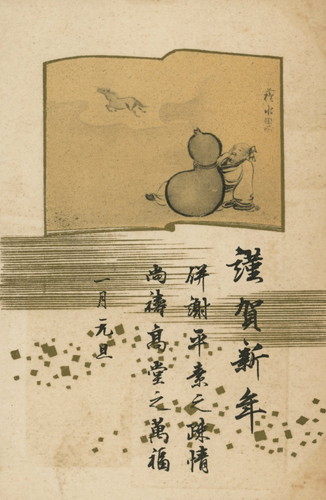 謹賀新年
併謝平素之疎情
尚祷高堂之萬福
一月元旦